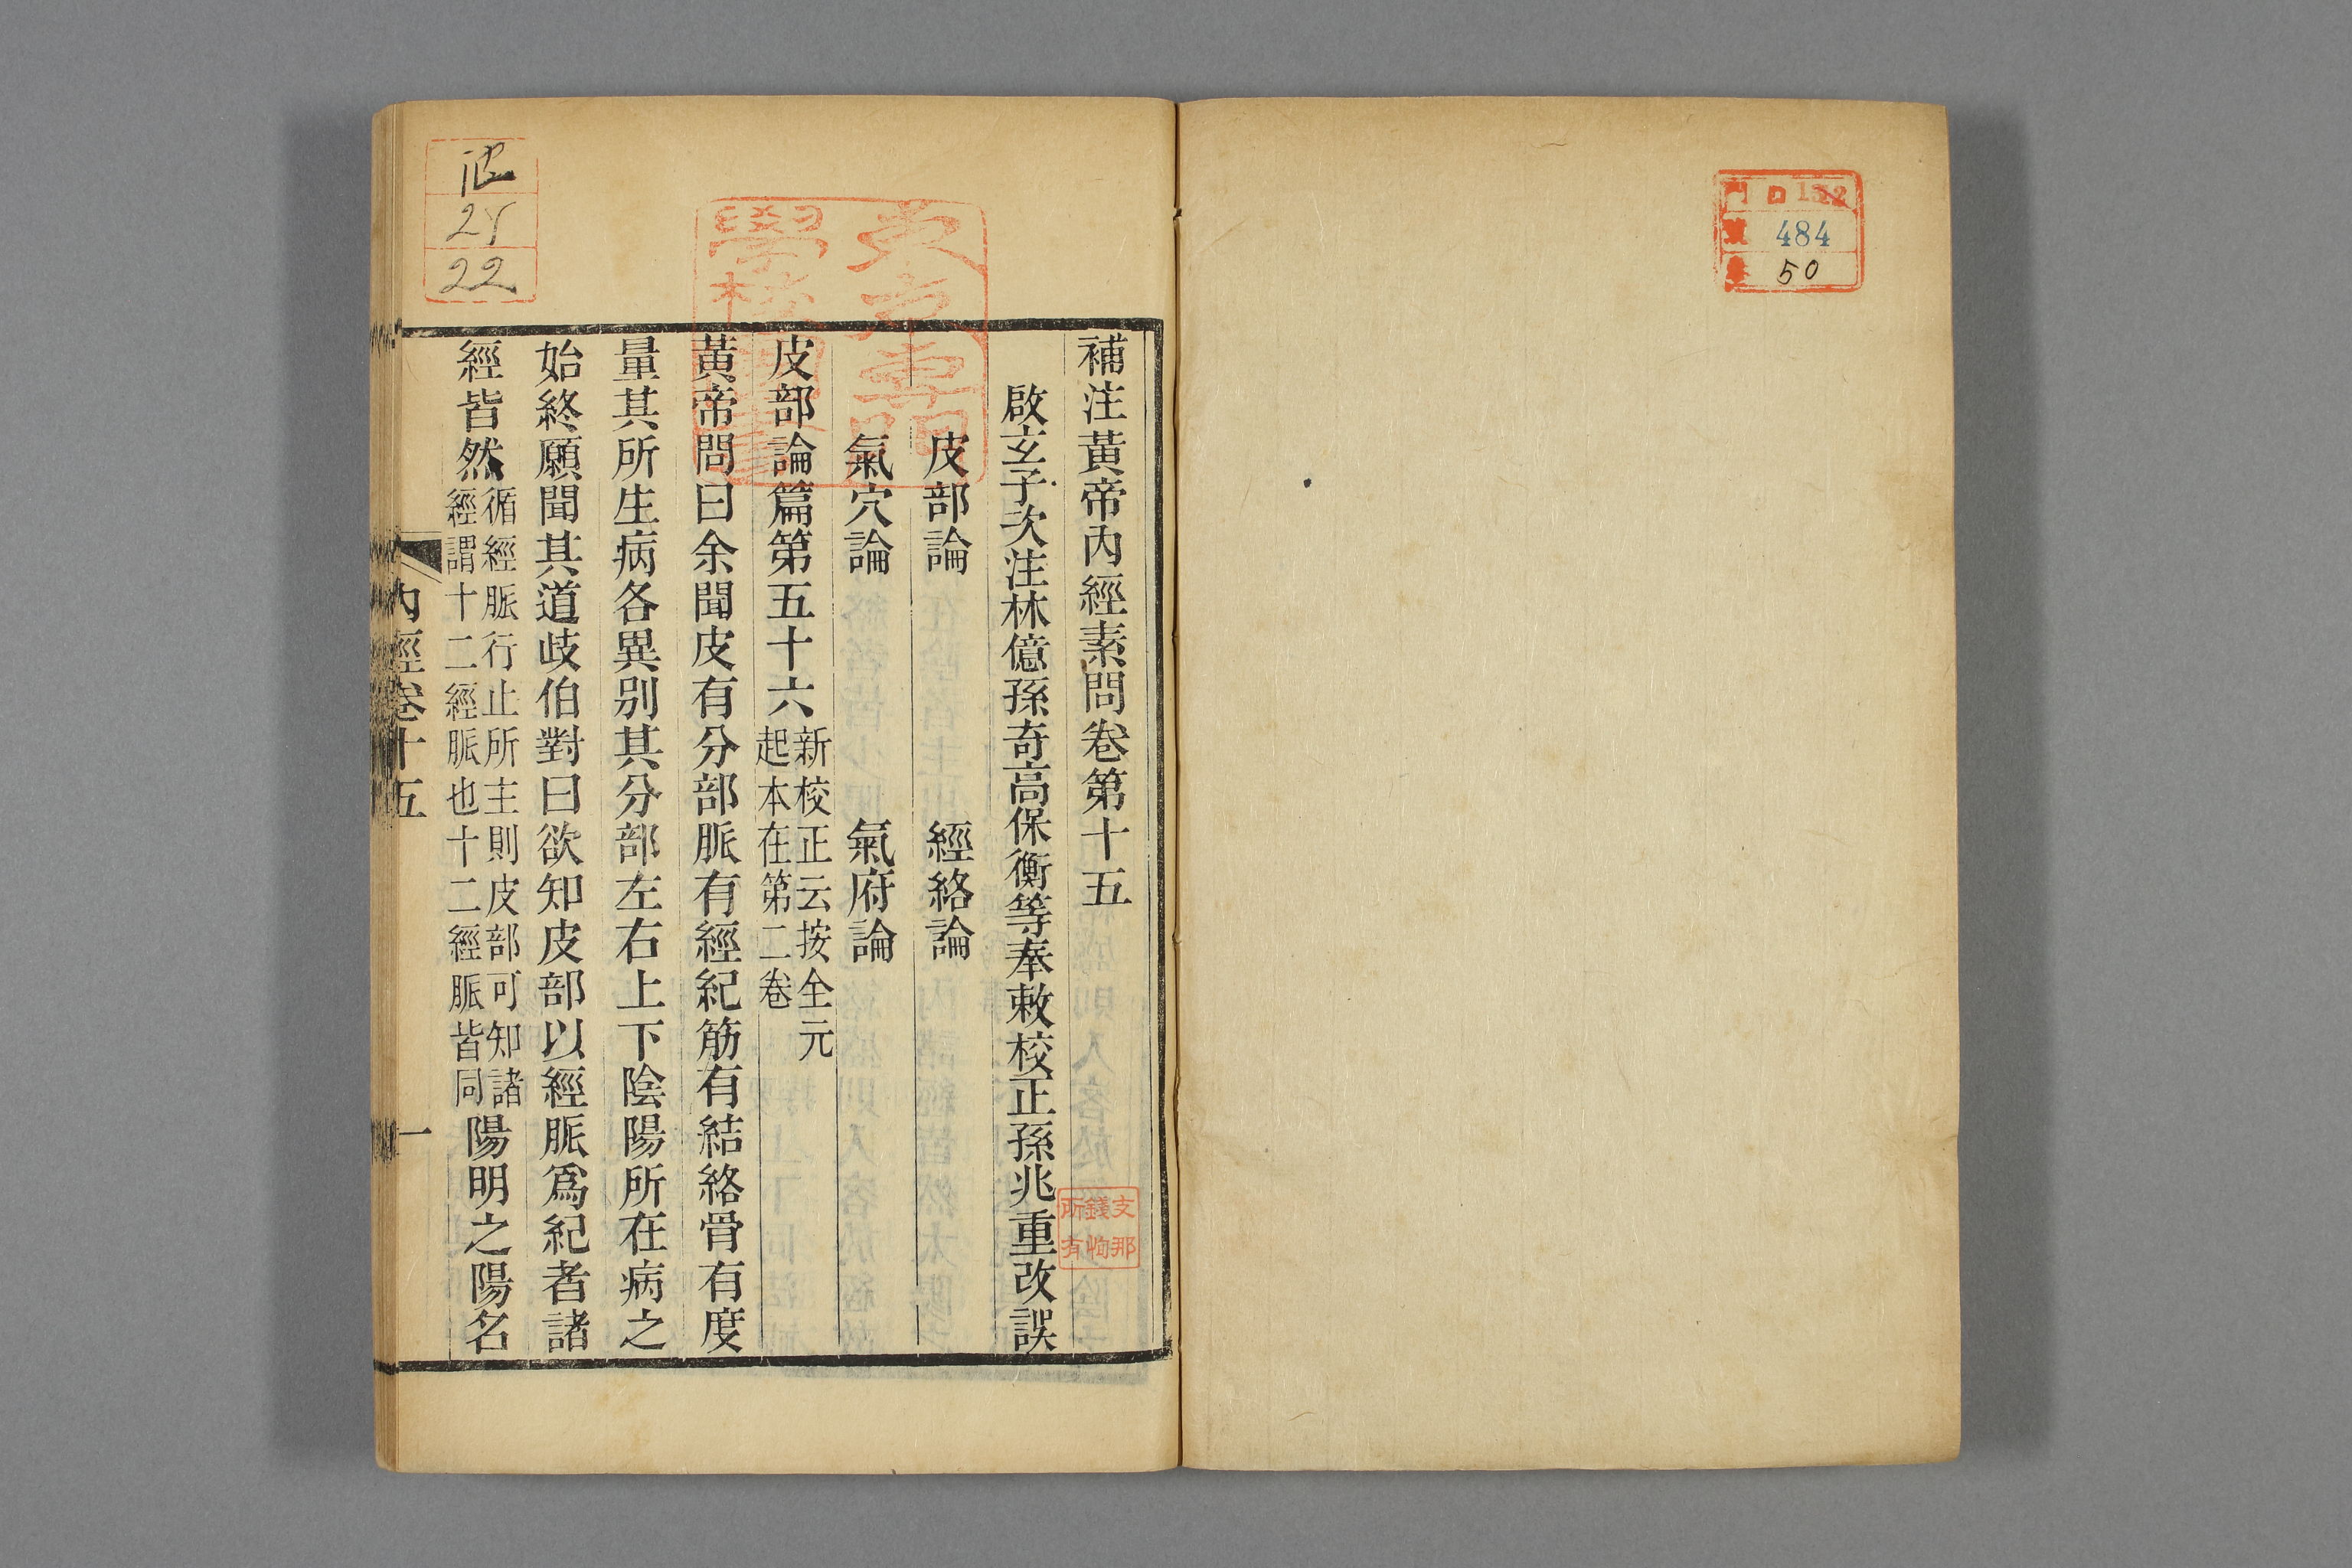 門 口 132
號 484
50
補注黃帝內經素問卷第十五
啟玄子次注林億孫奇高保衡等奉敕校正孫兆重改誤
皮部論 經絡論
氣穴論 氣府論
皮部論篇第五十六新校正云按全元起本在第二卷
黃帝問曰余聞皮有分部脈有經紀筋有結絡骨有度
量其所生病各異別其分部左右上下陰陽所在病之
始終願聞其道歧伯對曰欲知皮部以經脈爲紀者諸
經皆然循經脈行止所主則皮部可知諸經謂十二經脈也十二經脈皆同陽明之陽名
內經卷十五 一
支那
錢恂
所有
22